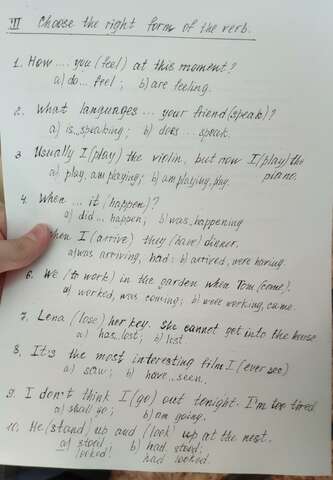 III Choose the right form of the verb.
1. How .... you (feel) at this moment?
a) do... feel; b) are feeling.
2. What languages ... your friend (speak)?
a) is...speaking; b) does ... speak.
3. Usually I (play) the violin, but now I (play) the
piano.
a) play, am playing; b) am playing, play.
4. When ... it (happen)?
a) did ... happen; b) was...happening
When I (arrive) they (have) dinner.
a) was arriving, had; b) arrived, were having.
6. We (to work) in the garden when Tom (come).
a) worked, was coming; b) were working, came.
7. Lena (lose) her key. She cannot get into the house
a) has lost; b) lost
8. It is the most interesting film I (ever see)
a) saw; b) have...seen.
9. I don't think I (go) out tonight. I'm too tired
a) shall go; b) am going.
10. He (stand) up and (look) up at the nest.
a) stood, b) had stood,
looked; had looked.